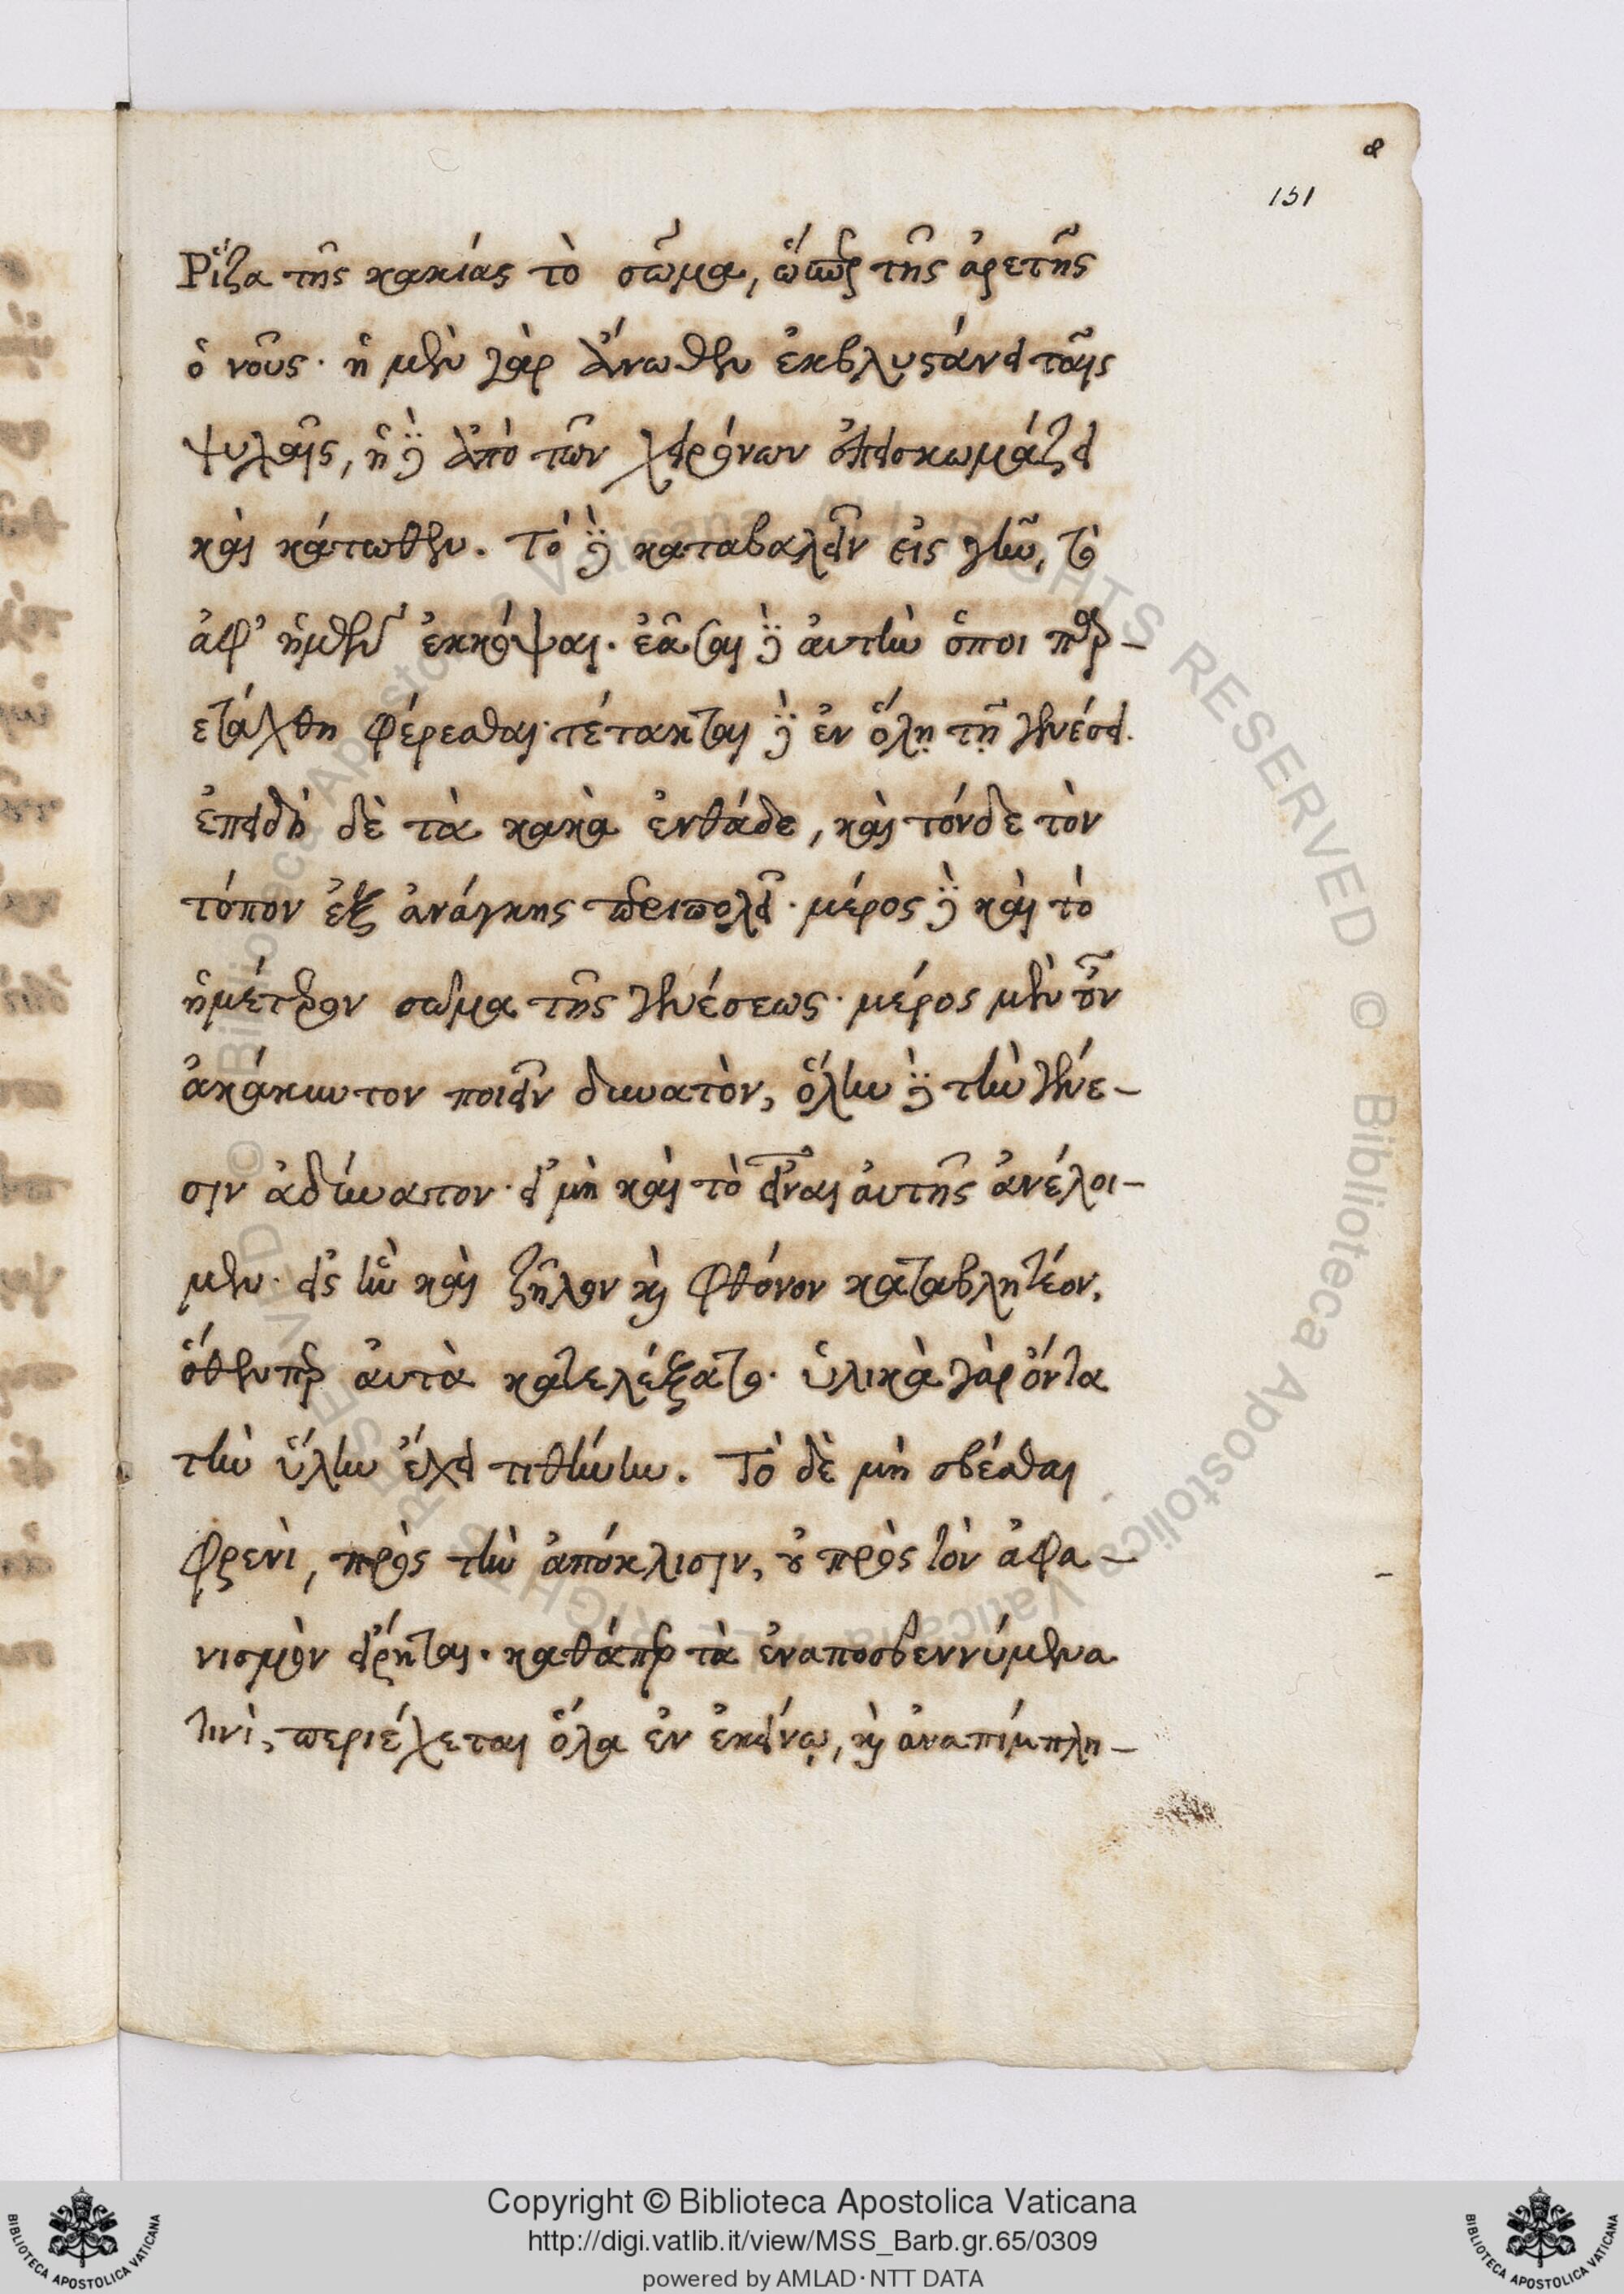 α
151
Ῥίζα τῆς κακίας τὸ σῶμα, ὥσπερ τῆς ἀρετῆς
ὁ νοῦς· ἡ μὲν γὰρ ἄνωθεν ἐκβλυστάνει ταῖς
ψυχαῖς, ἡ δὲ ἀπὸ τῶν χειρόνων ἐπεισκωμάζει
καὶ κάτωθεν. Τὸ δὲ καταβαλεῖν εἰς γῆν, τὸ
ἀφ' ἡμῶν ἐκκόψαι. ἐᾶσαι δὲ αὐτὴν ὅποι παρ-
ετάχθη φέρεσθαι· τέτακται δὲ ἐν ὅλῃ τῇ γενέσει.
ἐπειδὴ δὲ τὰ κακὰ ἐνθάδε, καὶ τόνδε τὸν
τόπον ἐξ ἀνάγκης περιπολεῖ· μέρος δὲ καὶ τὸ
ἡμέτερον σῶμα τῆς γενέσεως· μέρος μὲν οὖν
ἀκάκωτον ποιεῖν δυνατὸν, ὅλην δὲ τὴν γένε-
σιν ἀδύνατον· εἰ μὴ καὶ τὸ εἶναι αὐτῆς ἀνέλοι-
μεν· εἰς ἣν καὶ ζῆλον καὶ φθόνον καταβλητέον,
ὅθενπερ αὐτὰ κατελέξατο· ὑλικὰ γὰρ ὄντα
τὴν ὕλην ἔχει τιθήνην. Τὸ δὲ μὴ σβέσαι
φρενὶ, πρὸς τὴν ἀπόκλισιν, οὐ πρὸς τὸν ἀφα-
νισμὸν εἴρηται. καθάπερ τὰ ἐναποσβεννύμενα
τινὶ, περιέχεται ὅλα ἐν ἐκείνῳ, καὶ ἀναπίμπλη-
Copyright © Biblioteca Apostolica Vaticana
http://digi.vatlib.it/view/MSS_Barb.gr.65/0309
powered by AMLAD · NTT DATA
BIBLIOTECA APOSTOLICA VATICANA
BIBLIOTECA APOSTOLICA VATICANA